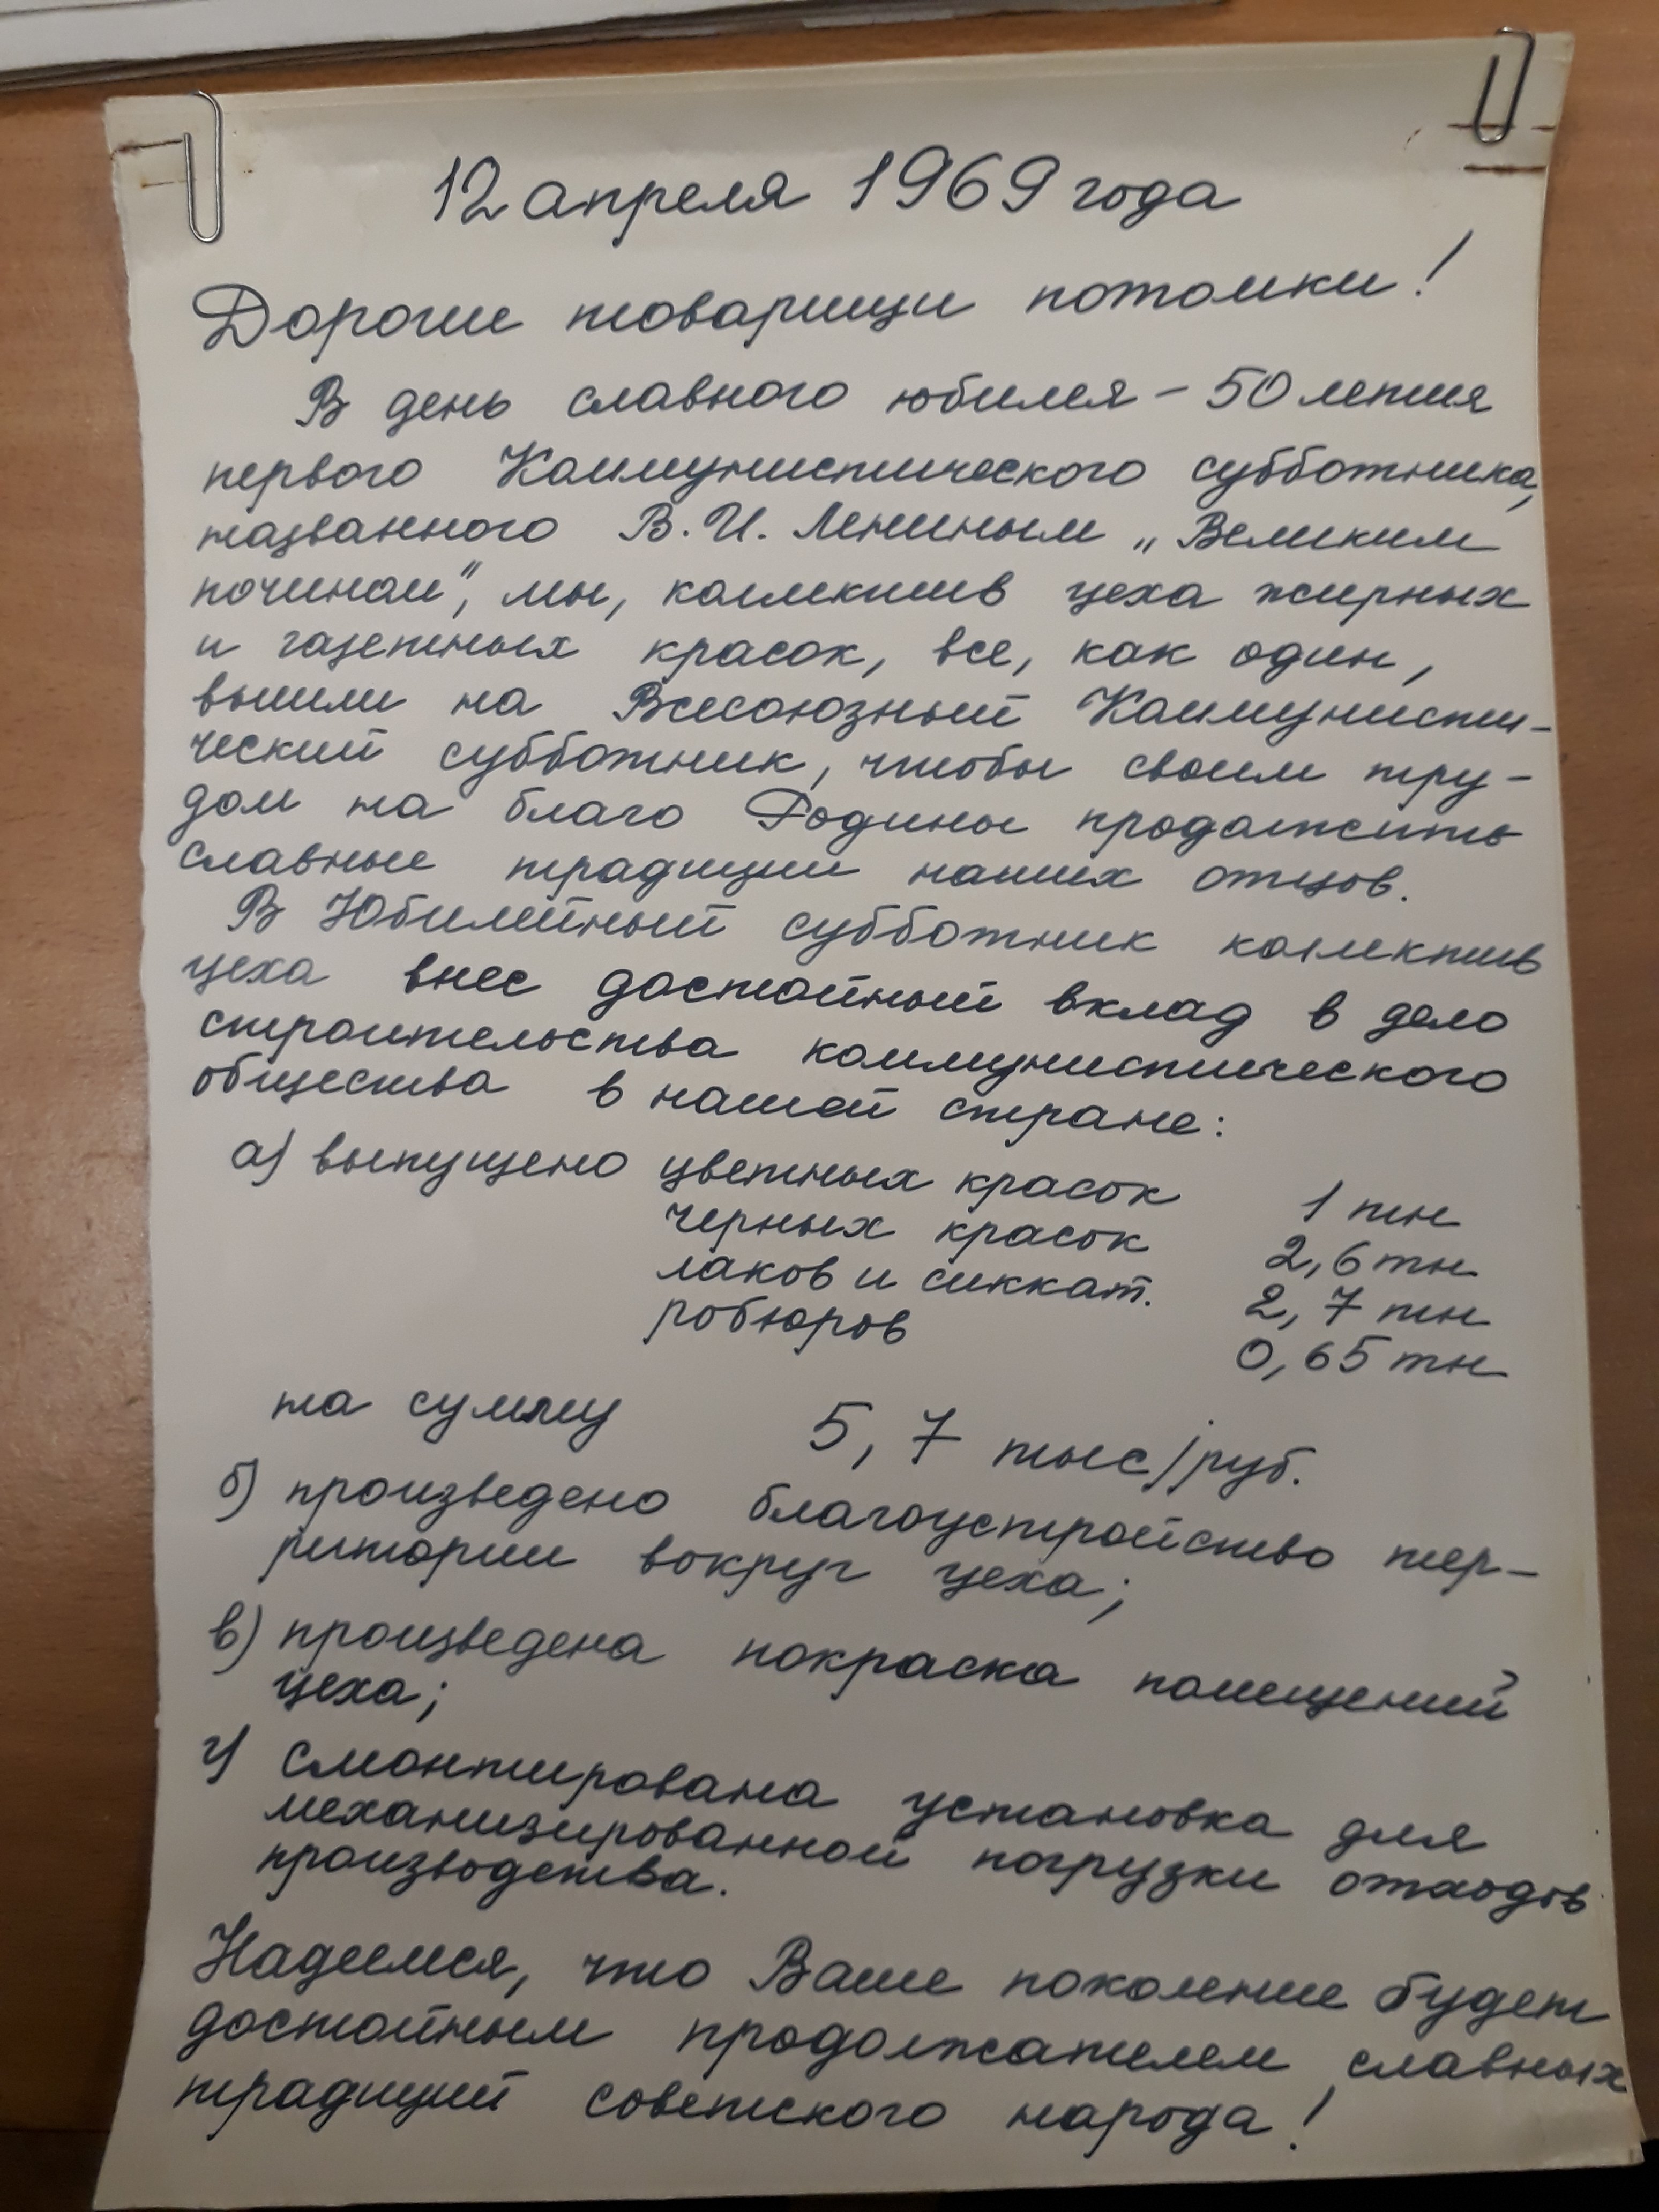 12 апреля 1969 года
Дорогие товарищи потомки!
В день славного юбилея – 50 летия
первого Коммунистического субботника,
названного В. И. Лениным „Великим
почином", мы, коллектив цеха жирных
и газетных красок, все, как один,
вышли на Всесоюзный Коммунисти-
ческий субботник, чтобы своим тру-
дом на благо Родины продолжить
славные традиции наших отцов.
В Юбилейный субботник коллектив
цеха внес достойный вклад в дело
строительства коммунистического
общества в нашей стране:
а) выпущено цветных красок 1 тн
черных красок 2,6 тн
лаков и сиккат. 2,7 тн
робюров 0,65 тн
на сумму 5,7 тыс/руб.
б) произведено благоустройство тер-
ритории вокруг цеха;
в) произведена покраска помещений
цеха;
г) смонтирована установка для
механизированной погрузки отходов
производства.
Надеемся, что Ваше поколение будет
достойным продолжателем славных
традиций советского народа!